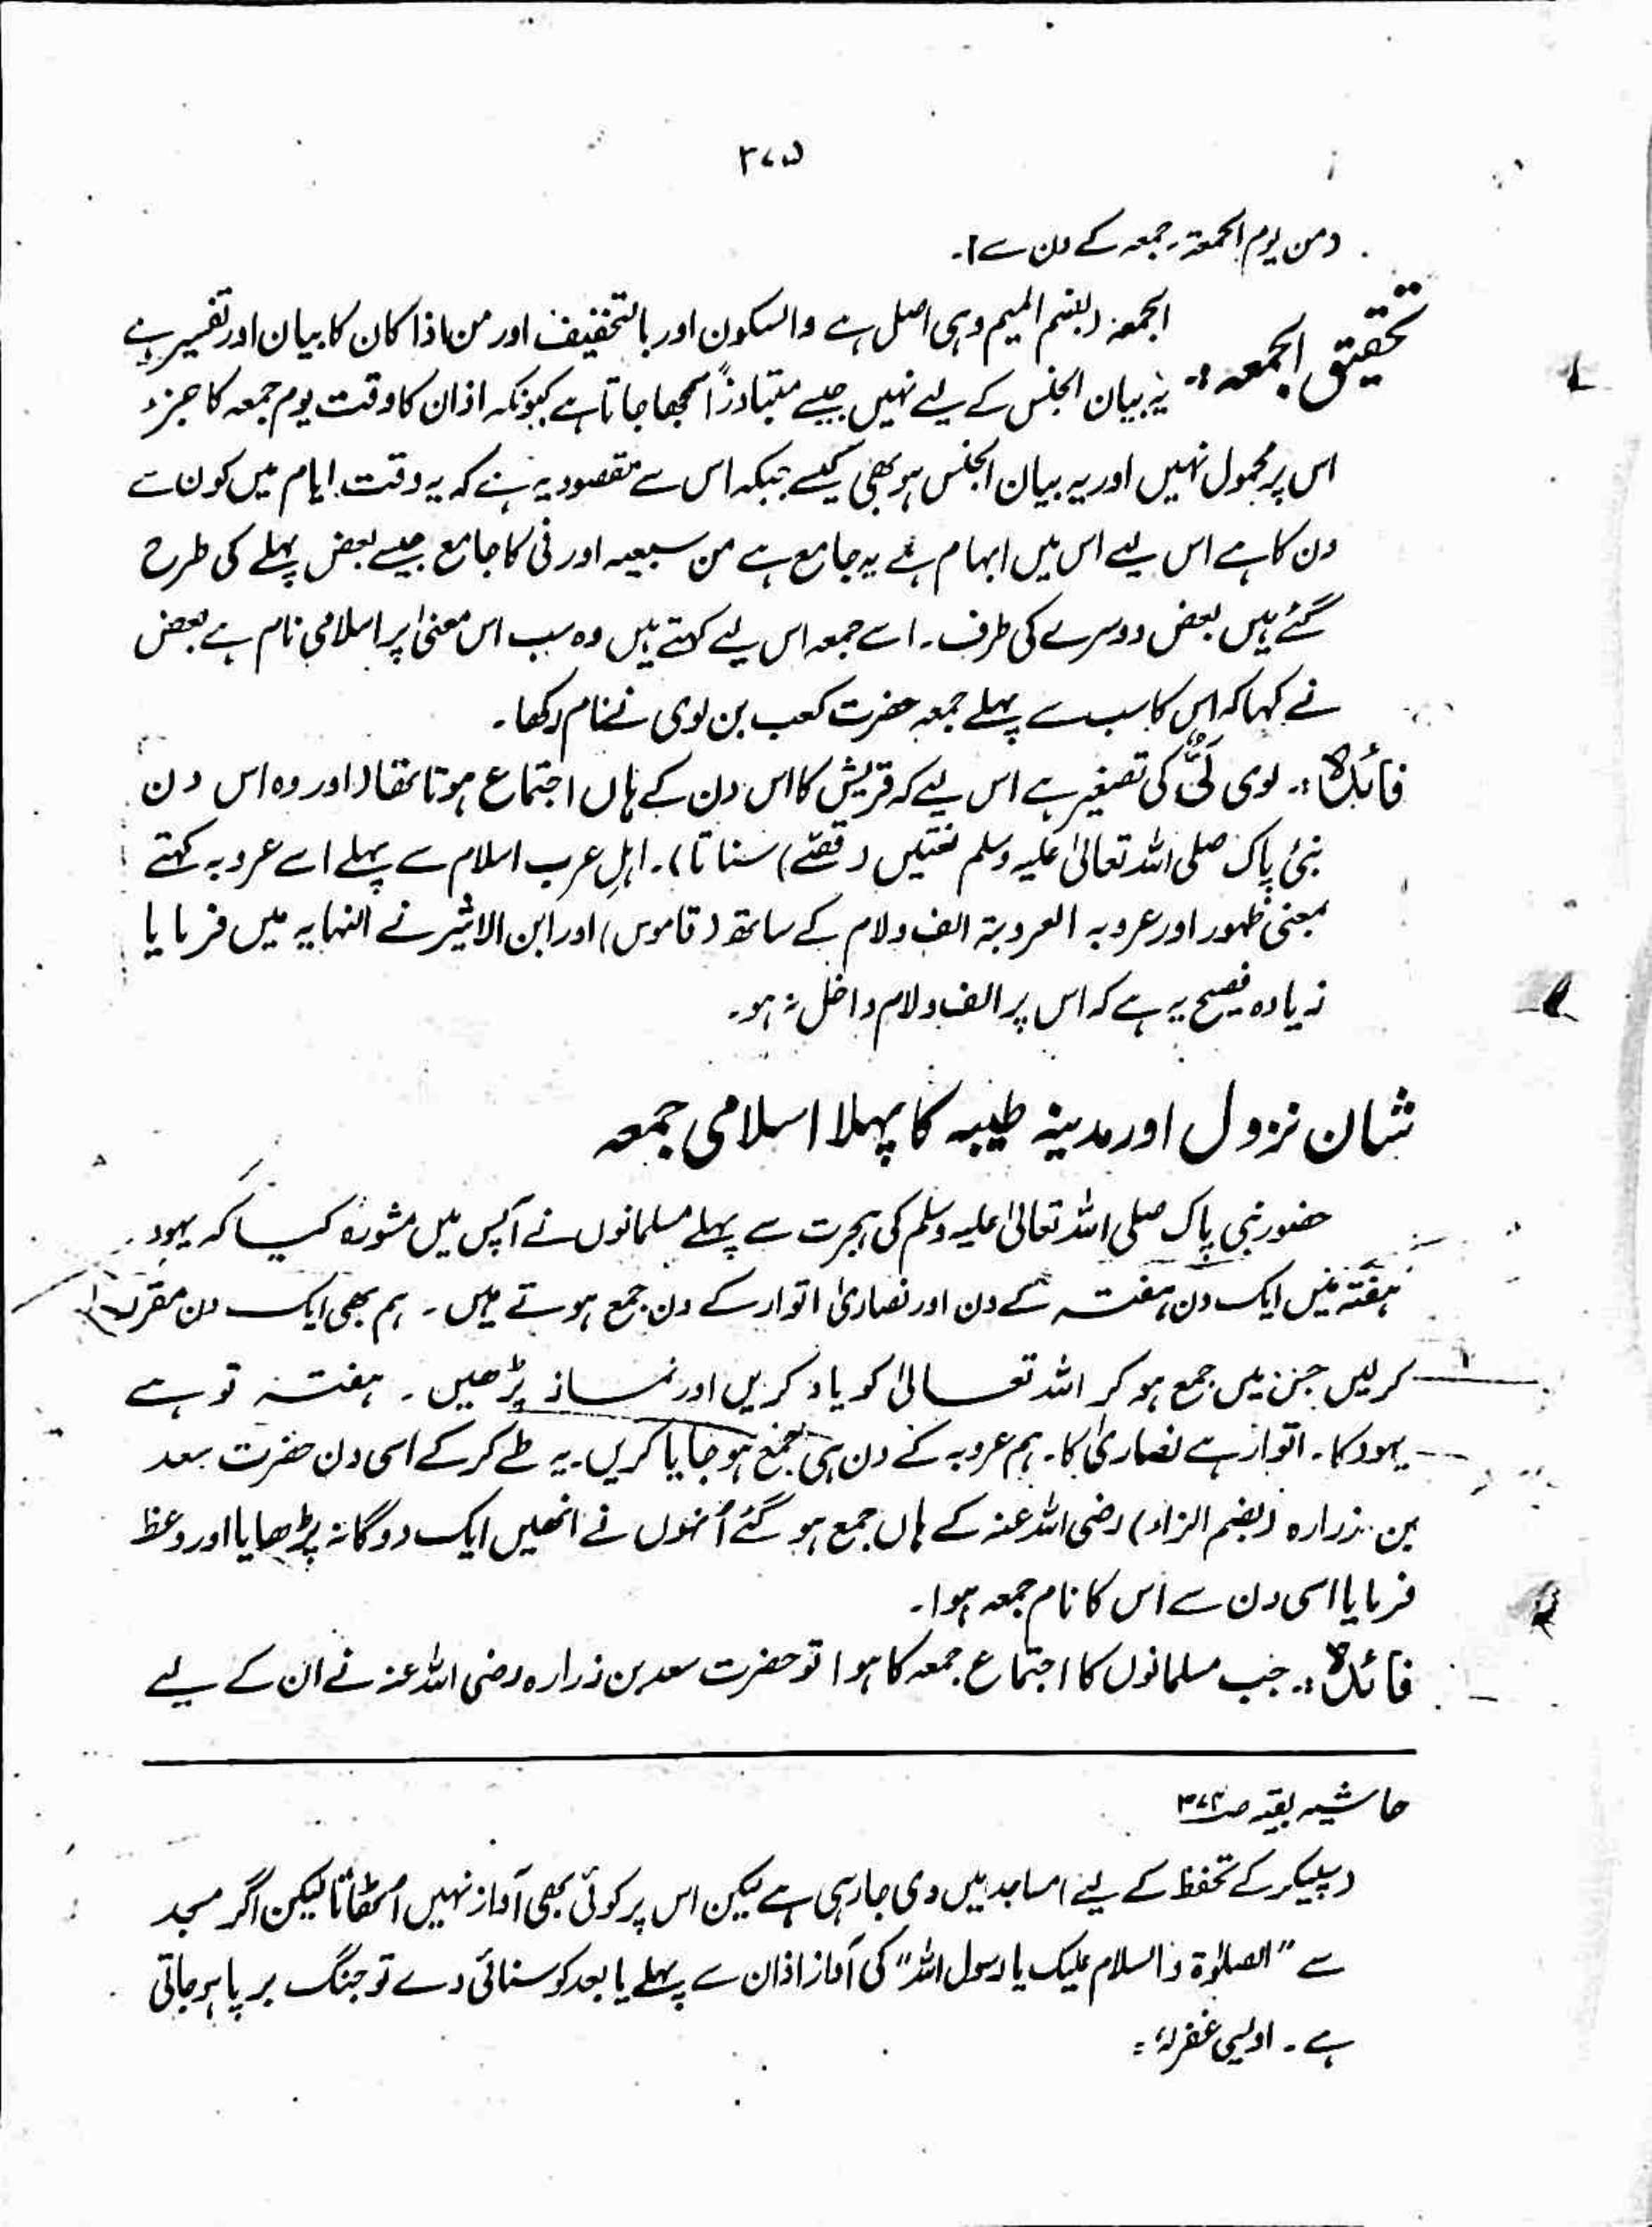 ۳۷۵
(من یوم الجمعۃ۔ جمعہ کے دن سے)۔
تحقیق الجمعہ :۔ الجمعۃ (بضم المیم وہی اصل ہے والسکون اور بالتخفیف اور من ماذا کان کا بیان اور تفسیر ہے
یہ بیان الجنس کے لیے نہیں جیسے متبادرًا سمجھا جاتا ہے کیونکہ اذان کا وقت یوم جمعہ کا جزء
اس پر محمول نہیں اور یہ بیان الجنس ہو بھی کیسے جبکہ اس سے مقصود یہ ہے کہ یہ وقت ایام میں کون سے
دن کا ہے اس لیے اس میں ابہام ہے یہ جامع ہے من سببیہ اور فی کا جامع جیسے بعض پہلے کی طرح
گئے ہیں بعض دوسرے کی طرف۔ اسے جمعہ اس لیے کہتے ہیں وہ سب اس معنیٰ پر اسلامی نام ہے بعض
نے کہا کہ اس کا سب سے پہلے جمعہ حضرت کعب بن لوی نے نام رکھا۔
فائدہ :۔ لوی لَیٌّ کی تصغیر ہے اس لیے کہ قریش کا اس دن کے ہاں اجتماع ہوتا تھا (اور وہ اس دن
نبیٔ پاک صلی اللہ تعالیٰ علیہ وسلم نعتیں (قصّے) سناتا)۔ اہلِ عرب اسلام سے پہلے اسے عروبہ کہتے
بمعنیٰ ظہور اور عروبہ العروبۃ الف و لام کے ساتھ (قاموس) اور ابن الاثیر نے النہایہ میں فرمایا
زیادہ فصیح یہ ہے کہ اس پر الف و لام داخل نہ ہو۔
شان نزول اور مدینہ طیبہ کا پہلا اسلامی جمعہ
حضور نبی پاک صلی اللہ تعالیٰ علیہ وسلم کی ہجرت سے پہلے مسلمانوں نے آپس میں مشورہ کیا کہ یہود
ہفتہ میں ایک دن ہفتہ کے دن اور نصاریٰ اتوار کے دن جمع ہوتے ہیں۔ ہم بھی ایک دن مقرر
کرلیں جس میں جمع ہو کر اللہ تعالیٰ کو یاد کریں اور نماز پڑھیں۔ ہفتہ تو ہے
یہود کا۔ اتوار ہے نصاریٰ کا۔ ہم عروبہ کے دن ہی جمع ہو جایا کریں۔ یہ طے کر کے اسی دن حضرت سعد
بن زرارہ (بضم الزاء) رضی اللہ عنہ کے ہاں جمع ہو گئے اُنہوں نے انھیں ایک دوگانہ پڑھایا اور وعظ
فرمایا اسی دن سے اس کا نام جمعہ ہوا۔
فائدہ :۔ جب مسلمانوں کا اجتماع جمعہ کا ہوا تو حضرت سعد بن زرارہ رضی اللہ عنہ نے ان کے لیے
حاشیہ بقیہ صـ۳۷۴
(سپیکر کے تحفظ کے لیے) مساجد میں دی جا رہی ہے لیکن اس پر کوئی بھی آواز نہیں اٹھاتا لیکن اگر مسجد
سے "الصلوٰۃ والسلام علیک یا رسول اللہ" کی آواز اذان سے پہلے یا بعد کو سنائی دے تو جنگ برپا ہو جاتی
ہے۔ اویسی غفرلہ =